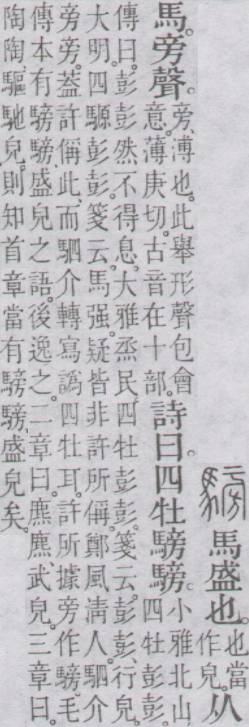 騯 馬盛也。也當作皃。从
馬。旁聲。旁、溥也。此舉形聲包會意。薄庚切。古音在十部。詩曰。四牡騯騯。小雅北山四牡彭彭。
傳曰。彭彭然不得息。大雅烝民。四牡彭彭。箋云。彭彭、行皃。
大明。四騵彭彭。箋云。馬强。疑皆非許所偁。鄭風淸人。駟介
旁旁。葢許偁此。而駟介轉寫譌四牡耳。許所據旁作騯。毛
傳本有騯騯盛皃之語。後逸之。二章曰。麃麃、武皃。三章曰。
陶陶、驅馳皃。則知首章當有騯騯、盛皃矣。